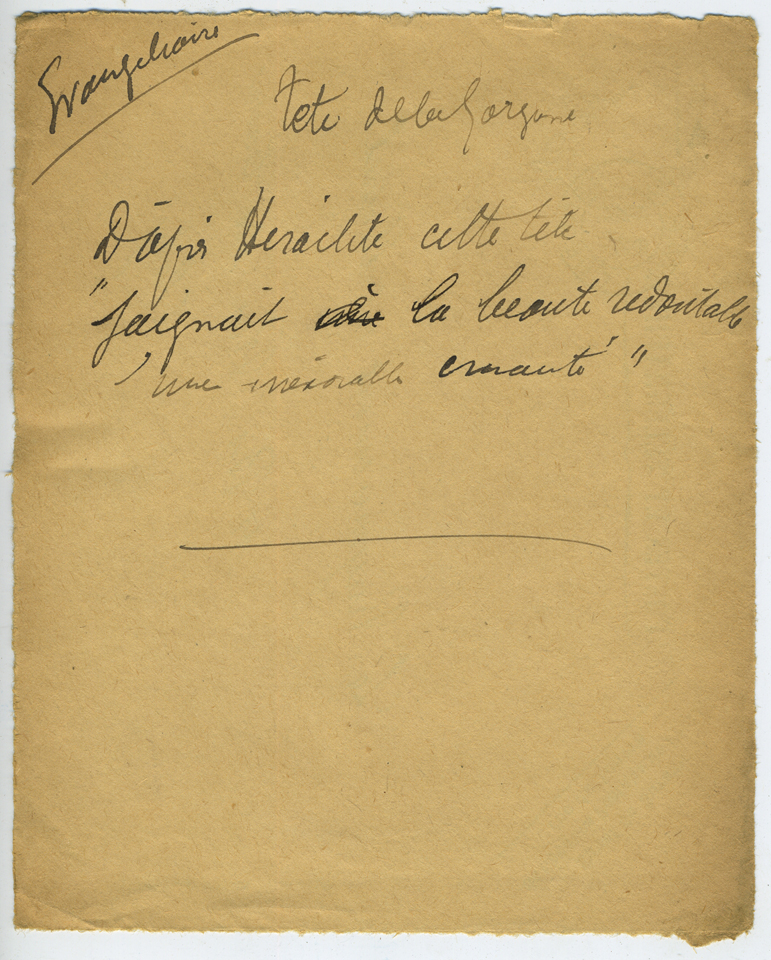 Evangeliaire
Tete de la Gorgone
D'après Heraclite cette tête
"Joignait à la beaute redoutable
une inéxorable cruauté"